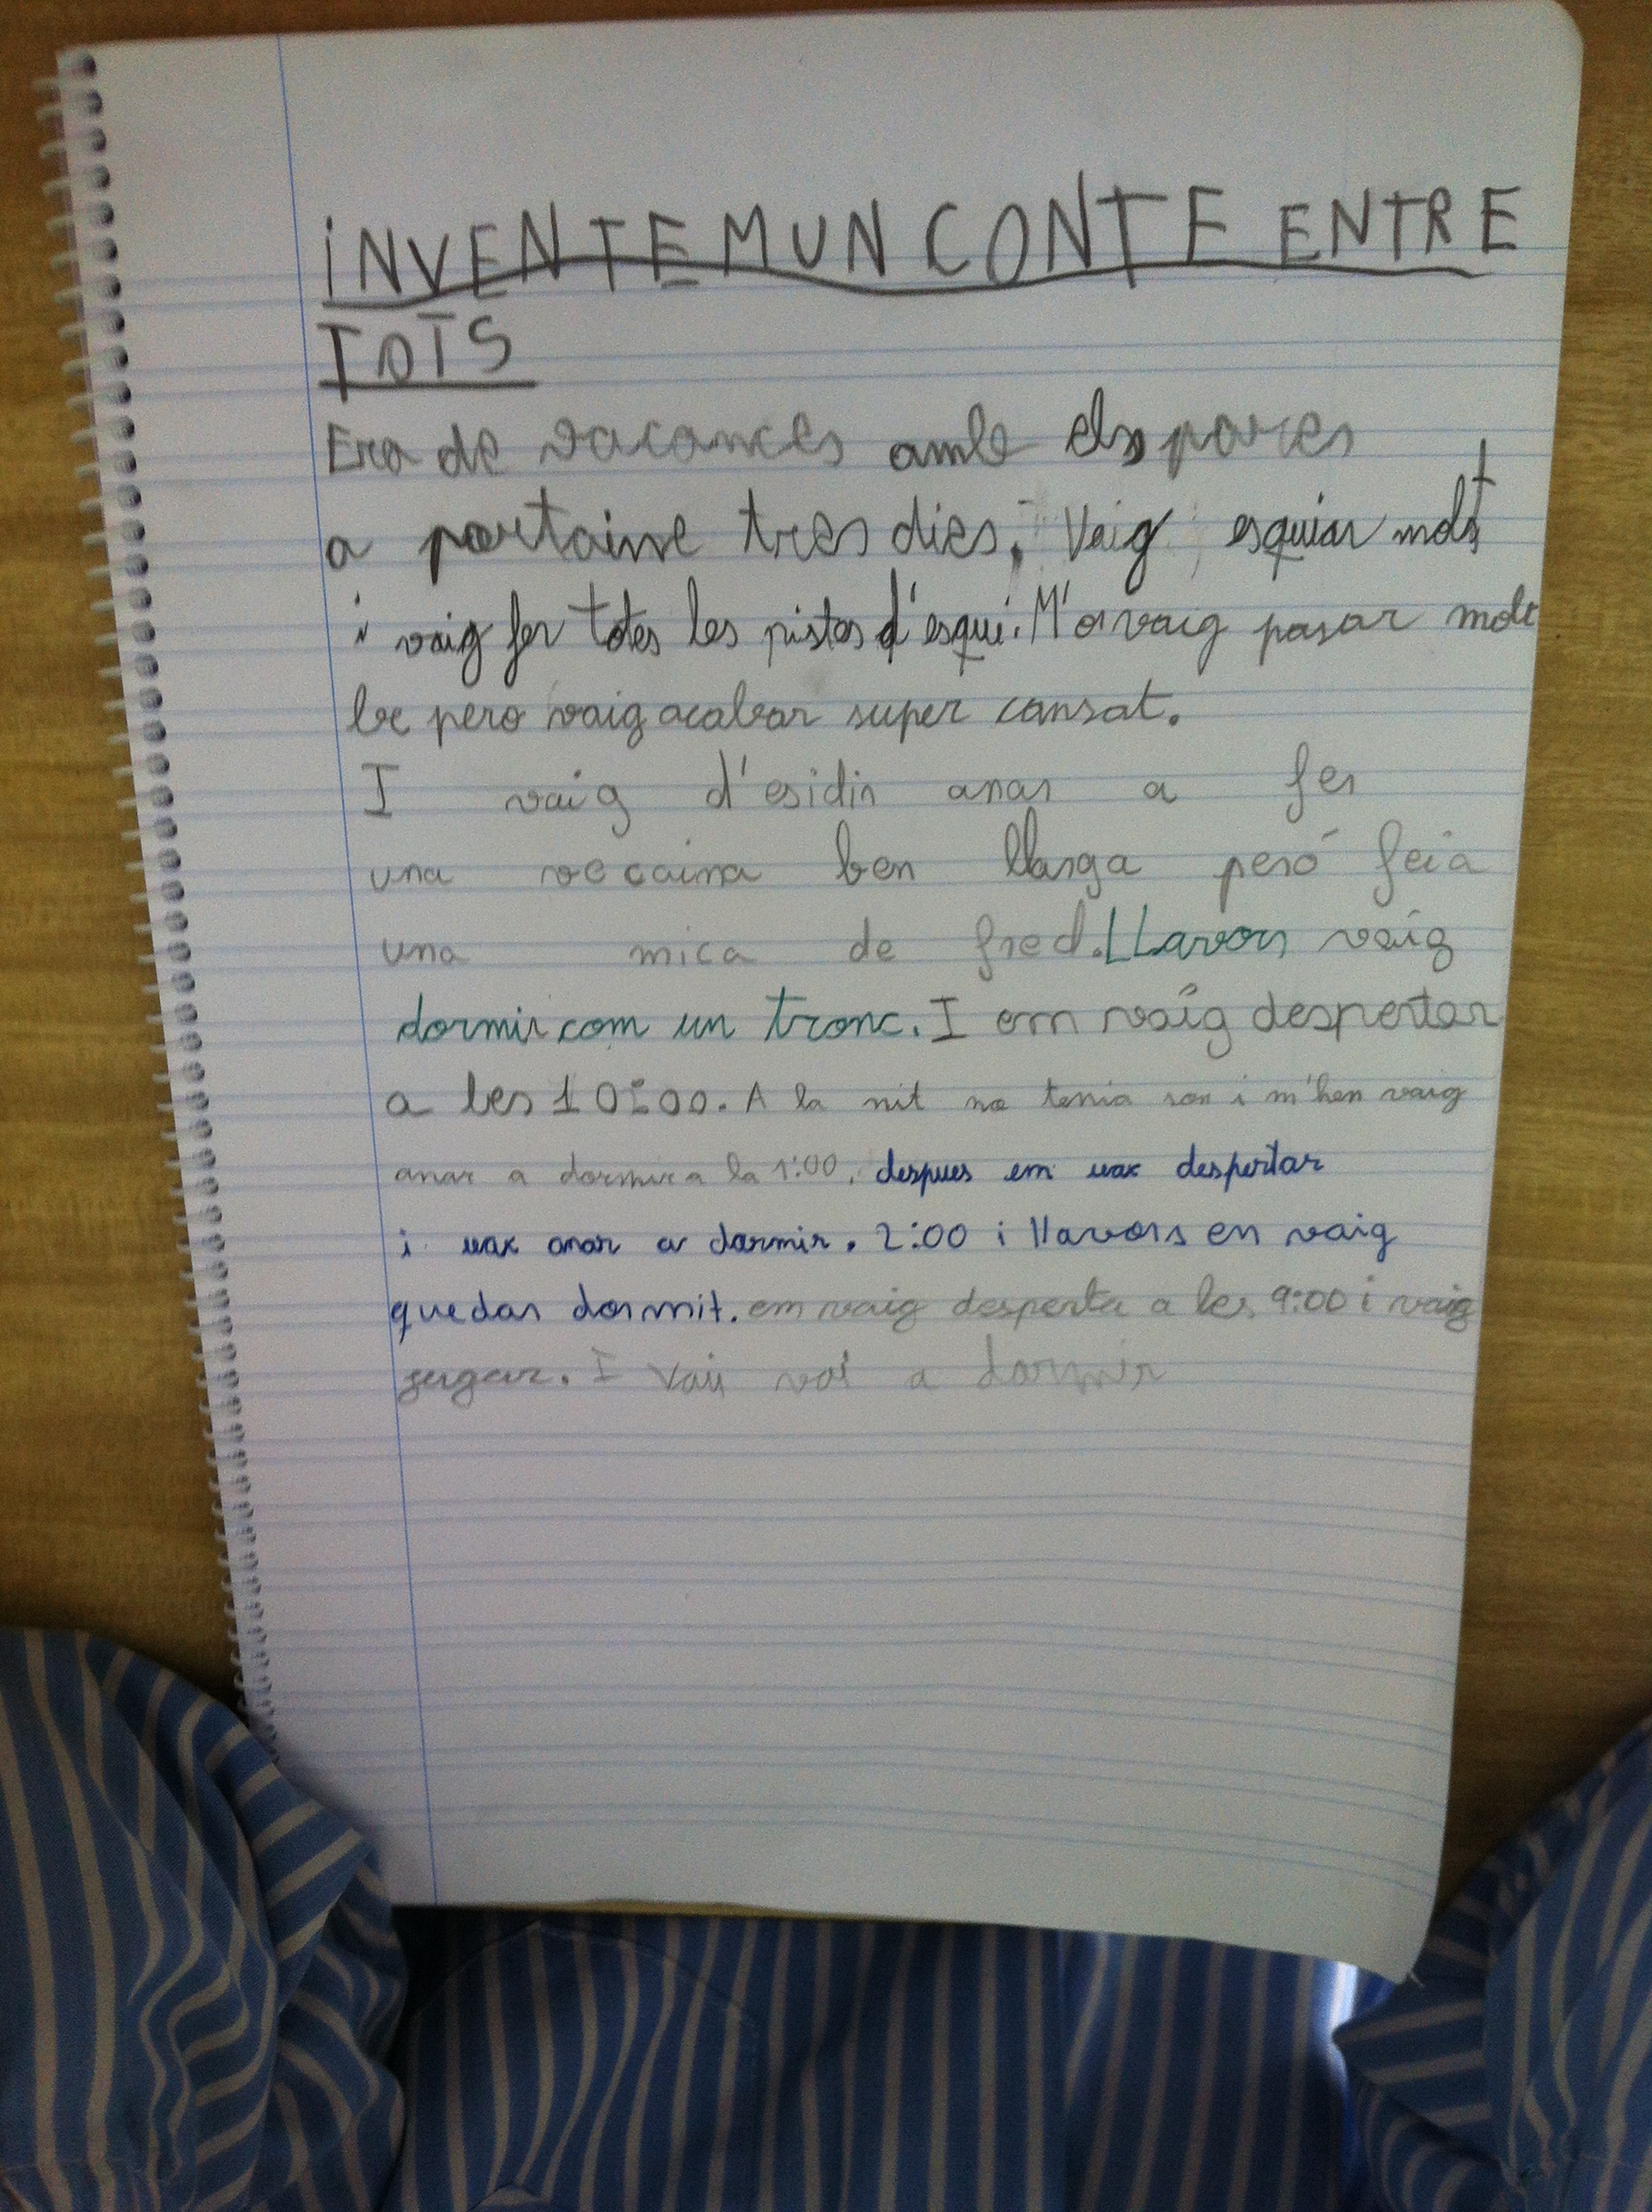 INVENTEM UN CONTE ENTRE
TOTS
Era de vacances amb els pares
a portaine tres dies. Vaig esquiar molt
i vaig fer totes les pistes d'esquí. M'o vaig pasar molt
be pero vaig acabar super cansat.
I vaig d'esidir anar a fer
una vecaina ben llarga peró feia
una mica de fred. LLavors vaig
dormir com un tronc. I em vaig despertar
a les 10:00. A la nit no tenia son i m'hen vaig
anar a dormir a la 1:00. despues em vax despertar
i vax anar a dormir. 2:00 i llavors en vaig
quedar dormit. em vaig desperta a les 9:00 i vaig
jugar. I Vaij a dormir